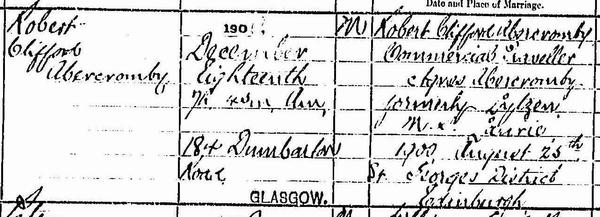 Date and Place of Marriage.
Robert
Clifford
Abercromby
190
December
Eighteenth
184 Dumbarton
Road
GLASGOW.
M
Robert Clifford Abercromby
Commercial Traveller
Agnes Abercromby
formerly
1900 August 25th
St Georges District
Edinburgh